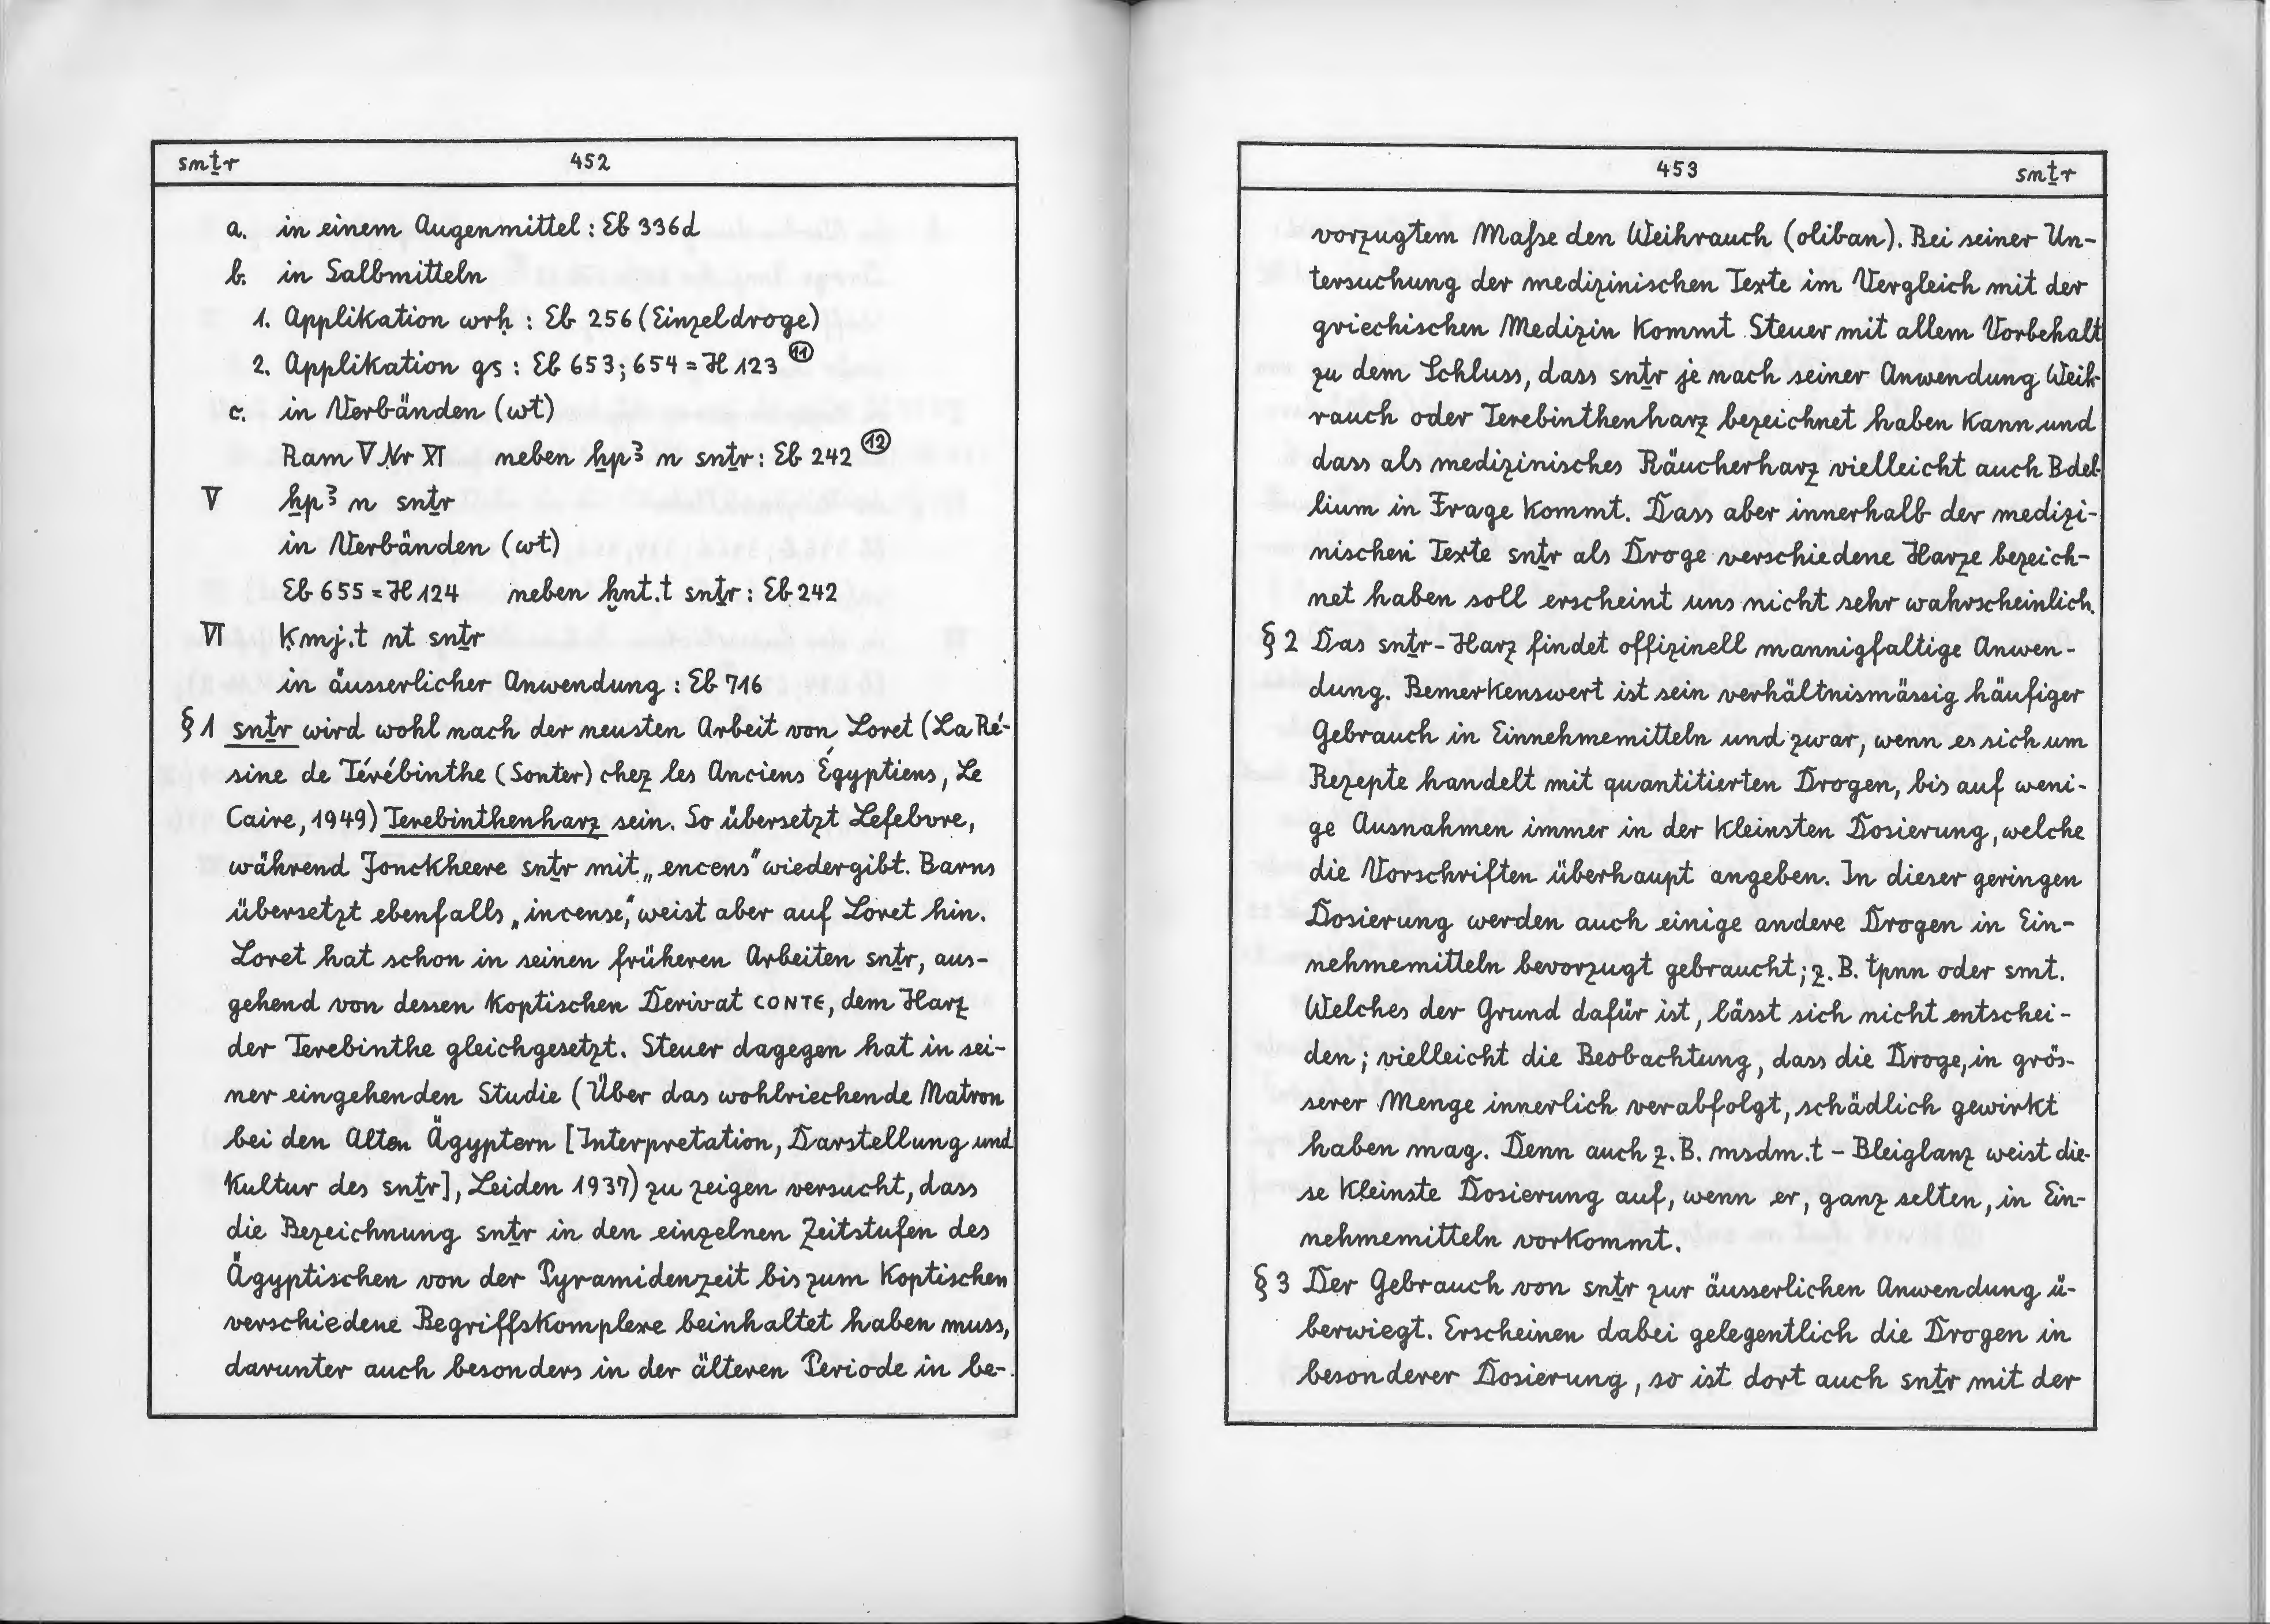 snṯr 452
a. in einem Augenmittel: Eb 336d
b. in Salbmitteln
1. Applikation wrḥ : Eb 256 (Einzeldroge)
2. Applikation gs : Eb 653; 654 = H 123 ⑪
c. in Verbänden (wt)
Ram V Nr VI neben ẖpꜣ n snṯr: Eb 242 ⑫
V ẖpꜣ n snṯr
in Verbänden (wt)
Eb 655 = H 124 neben ḫnt.t snṯr: Eb 242
VI ḳmj.t nt snṯr
in äusserlicher Anwendung: Eb 716
§ 1 snṯr wird wohl nach der neusten Arbeit von Loret (La Ré-
sine de Térébinthe (Sonter) chez les Anciens Égyptiens, Le
Caire, 1949) Terebinthenharz sein. So übersetzt Lefebvre,
während Jonckheere snṯr mit „encens" wiedergibt. Barns
übersetzt ebenfalls „incense," weist aber auf Loret hin.
Loret hat schon in seinen früheren Arbeiten snṯr, aus-
gehend von dessen koptischen Derivat CONTE, dem Harz
der Terebinthe gleichgesetzt. Steuer dagegen hat in sei-
ner eingehenden Studie (Über das wohlriechende Natron
bei den Alten Ägyptern [Interpretation, Darstellung und
Kultur des snṯr], Leiden 1937) zu zeigen versucht, dass
die Bezeichnung snṯr in den einzelnen Zeitstufen des
Ägyptischen von der Pyramidenzeit bis zum Koptischen
verschiedene Begriffskomplexe beinhaltet haben muss,
darunter auch besonders in der älteren Periode in be-
453 snṯr
vorzugtem Maße den Weihrauch (oliban). Bei seiner Un-
tersuchung der medizinischen Texte im Vergleich mit der
griechischen Medizin kommt Steuer mit allem Vorbehalt
zu dem Schluss, dass snṯr je nach seiner Anwendung Weih-
rauch oder Terebinthenharz bezeichnet haben kann und
dass als medizinisches Räucherharz vielleicht auch Bdel-
lium in Frage kommt. Dass aber innerhalb der medizi-
nischen Texte snṯr als Droge verschiedene Harze bezeich-
net haben soll erscheint uns nicht sehr wahrscheinlich.
§ 2 Das snṯr-Harz findet offizinell mannigfaltige Anwen-
dung. Bemerkenswert ist sein verhältnismässig häufiger
Gebrauch in Einnehmemitteln und zwar, wenn es sich um
Rezepte handelt mit quantitierten Drogen, bis auf weni-
ge Ausnahmen immer in der kleinsten Dosierung, welche
die Vorschriften überhaupt angeben. In dieser geringen
Dosierung werden auch einige andere Drogen in Ein-
nehmemitteln bevorzugt gebraucht; z. B. tpnn oder smt.
Welches der Grund dafür ist, lässt sich nicht entschei-
den; vielleicht die Beobachtung, dass die Droge, in grös-
serer Menge innerlich verabfolgt, schädlich gewirkt
haben mag. Denn auch z. B. msdm.t - Bleiglanz weist die-
se kleinste Dosierung auf, wenn er, ganz selten, in Ein-
nehmemitteln vorkommt.
§ 3 Der Gebrauch von snṯr zur äusserlichen Anwendung ü-
berwiegt. Erscheinen dabei gelegentlich die Drogen in
besonderer Dosierung, so ist dort auch snṯr mit der